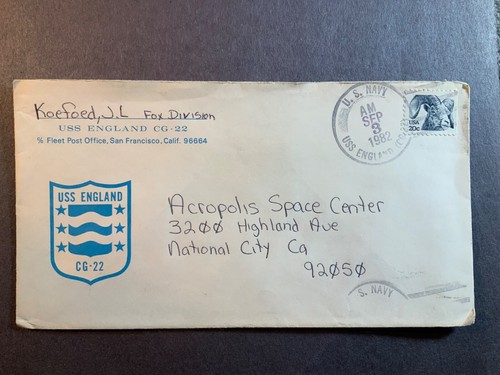 Koefoed, J.L Fox Division
USS ENGLAND CG-22
% Fleet Post Office, San Francisco, Calif. 96664
U. S. NAVY
AM
SEP
3
1982
USS ENGLAND
USA
20c
USS ENGLAND
CG-22
Acropolis Space Center
3200 Highland Ave
National City Ca
92050
S. NAVY